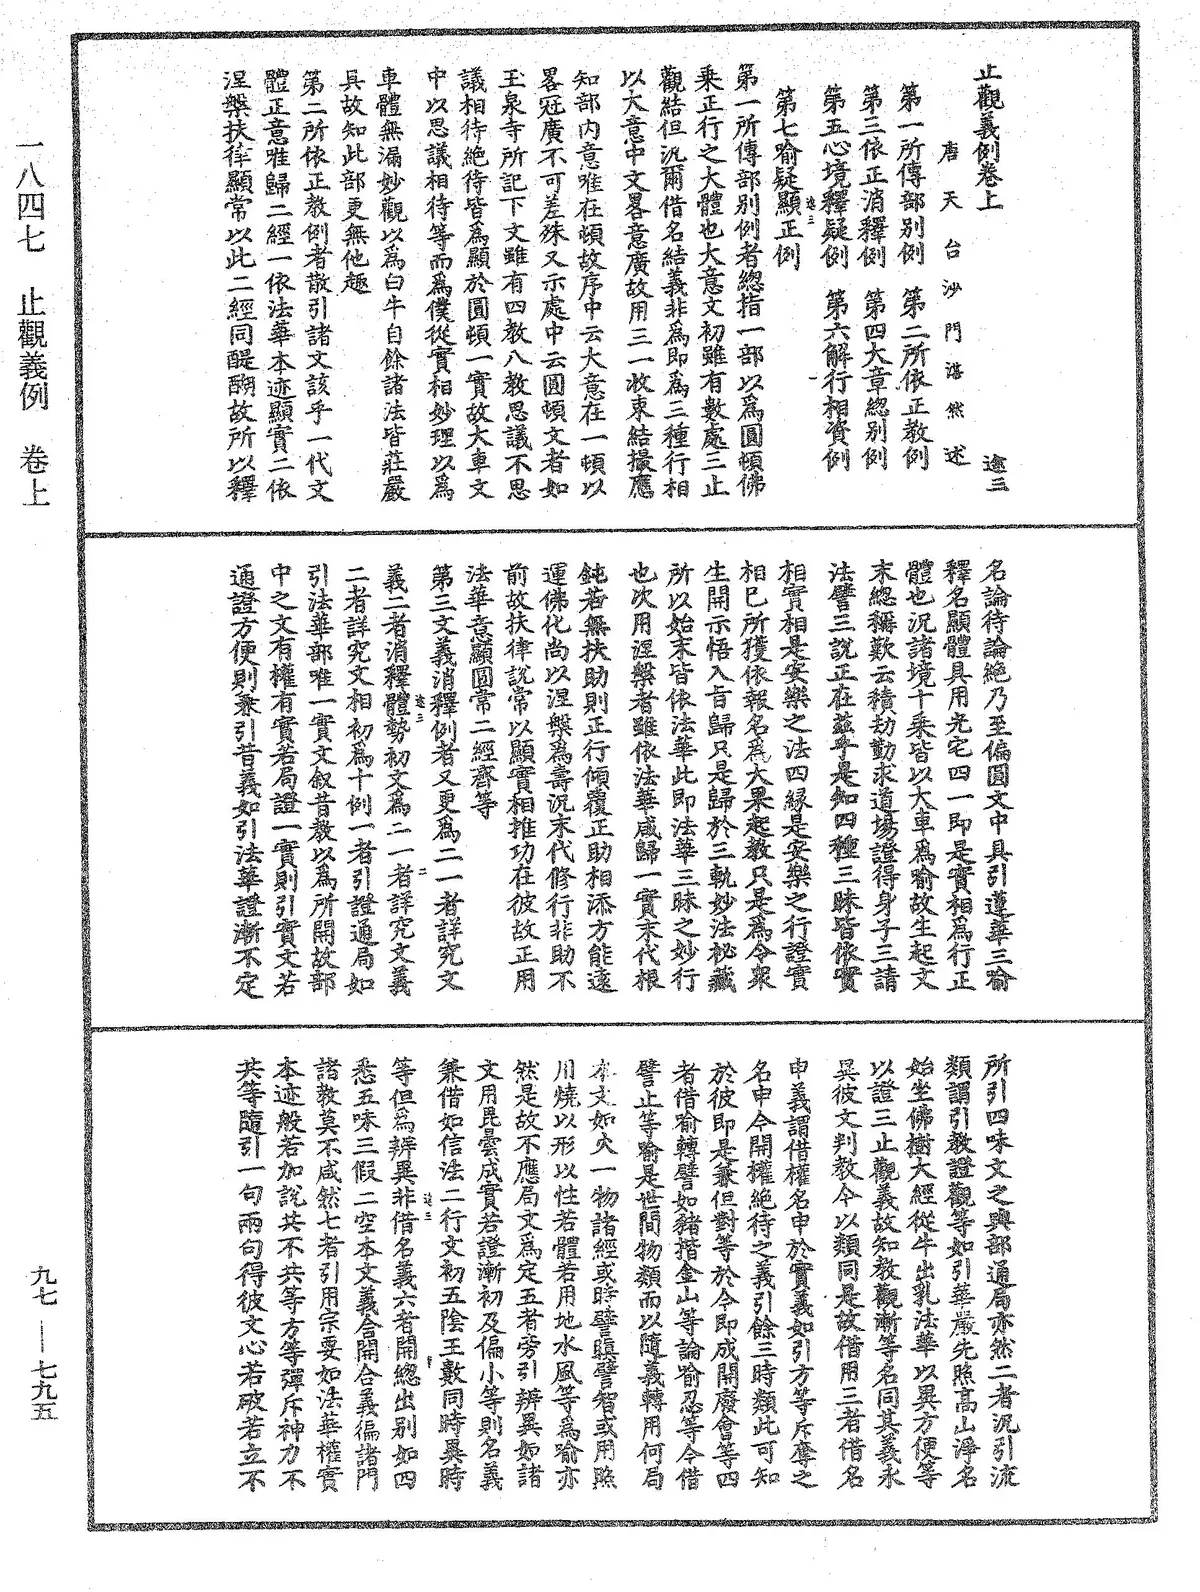 止觀義例卷上
逵三
唐天台沙門湛然述
第一所傳部別例　第二所依正教例
第三依正消釋例　第四大章總別例
第五心境釋疑例　第六解行相資例
第七喻疑顯正例
第一所傳部別例者總指一部以為圓頓佛
乘正行之大體也大意文初雖有數處三止
觀結但況爾借名結義非為即為三種行相
以大意中文畧意廣故用三一收束結撮應
知部內意唯在頓故序中云大意在一頓以
畧冠廣不可差殊又示處中云圓頓文者如
玉泉寺所記下文雖有四教八教思議不思
議相待絶待皆為顯於圓頓一實故大車文
中以思議相待等而為僕從實相妙理以為
車體無漏妙觀以為白牛自餘諸法皆莊嚴
具故知此部更無他趣
第二所依正教例者散引諸文該乎一代文
體正意唯歸二經一依法華本迹顯實二依
涅槃扶律顯常以此二經同醍醐故所以釋
名論待論絶乃至偏圓文中具引蓮華三喻
釋名顯體具用光宅四一即是實相為行正
體也況諸境十乘皆以大車為喻故生起文
末總稱歎云積劫勤求道場證得身子三請
法譬三說正在茲乎是知四種三昧皆依實
相實相是安樂之法四緣是安樂之行證實
相已所獲依報名為大果起教只是為令衆
生開示悟入旨歸只是歸於三軌妙法祕藏
所以始末皆依法華此即法華三昧之妙行
也次用涅槃者雖依法華咸歸一實末代根
鈍若無扶助則正行傾覆正助相添方能遠
運佛化尚以涅槃為壽況末代修行非助不
前故扶律說常以顯實相推功在彼故正用
法華意顯圓常二經齊等
第三文義消釋例者又更為二一者詳究文
義二者消釋體勢初文為二一者詳究文義
二者詳究文相初為十例一者引證通局如
引法華部唯一實文叙昔教以為所開故部
中之文有權有實若局證一實則引實文若
通證方便則兼引昔義如引法華證漸不定
所引四味文之與部通局亦然二者況引流
類謂引教證觀等如引華嚴先照高山淨名
始坐佛樹大經從牛出乳法華以異方便等
以證三止觀義故知教觀漸等名同其義永
異彼文判教今以類同是故借用三者借名
申義謂借權名申於實義如引方等斥奪之
名申今開權絶待之義引餘三時類此可知
於彼即是兼但對等於今即成開廢會等四
者借喻轉譬如豬揩金山等論喻忍等今借
譬止等喻是世間物類而以隨義轉用何局
本文如火一物諸經或時譬瞋譬智或用照
川燒以形以性若體若用地水風等為喻亦
然是故不應局文為定五者旁引辨異如諸
文用毘曇成實若證漸初及偏小等則名義
兼借如信法二行文初五陰王數同時異時
等但為辨異非借名義六者開總出別如四
悉五味三假二空本文義含開合義徧諸門
諸教莫不咸然七者引用宗要如法華權實
本迹般若加說共不共等方等彈斥神力不
共等隨引一句兩句得彼文心若破若立不
一八四七　止觀義例　卷上
九七—七九五